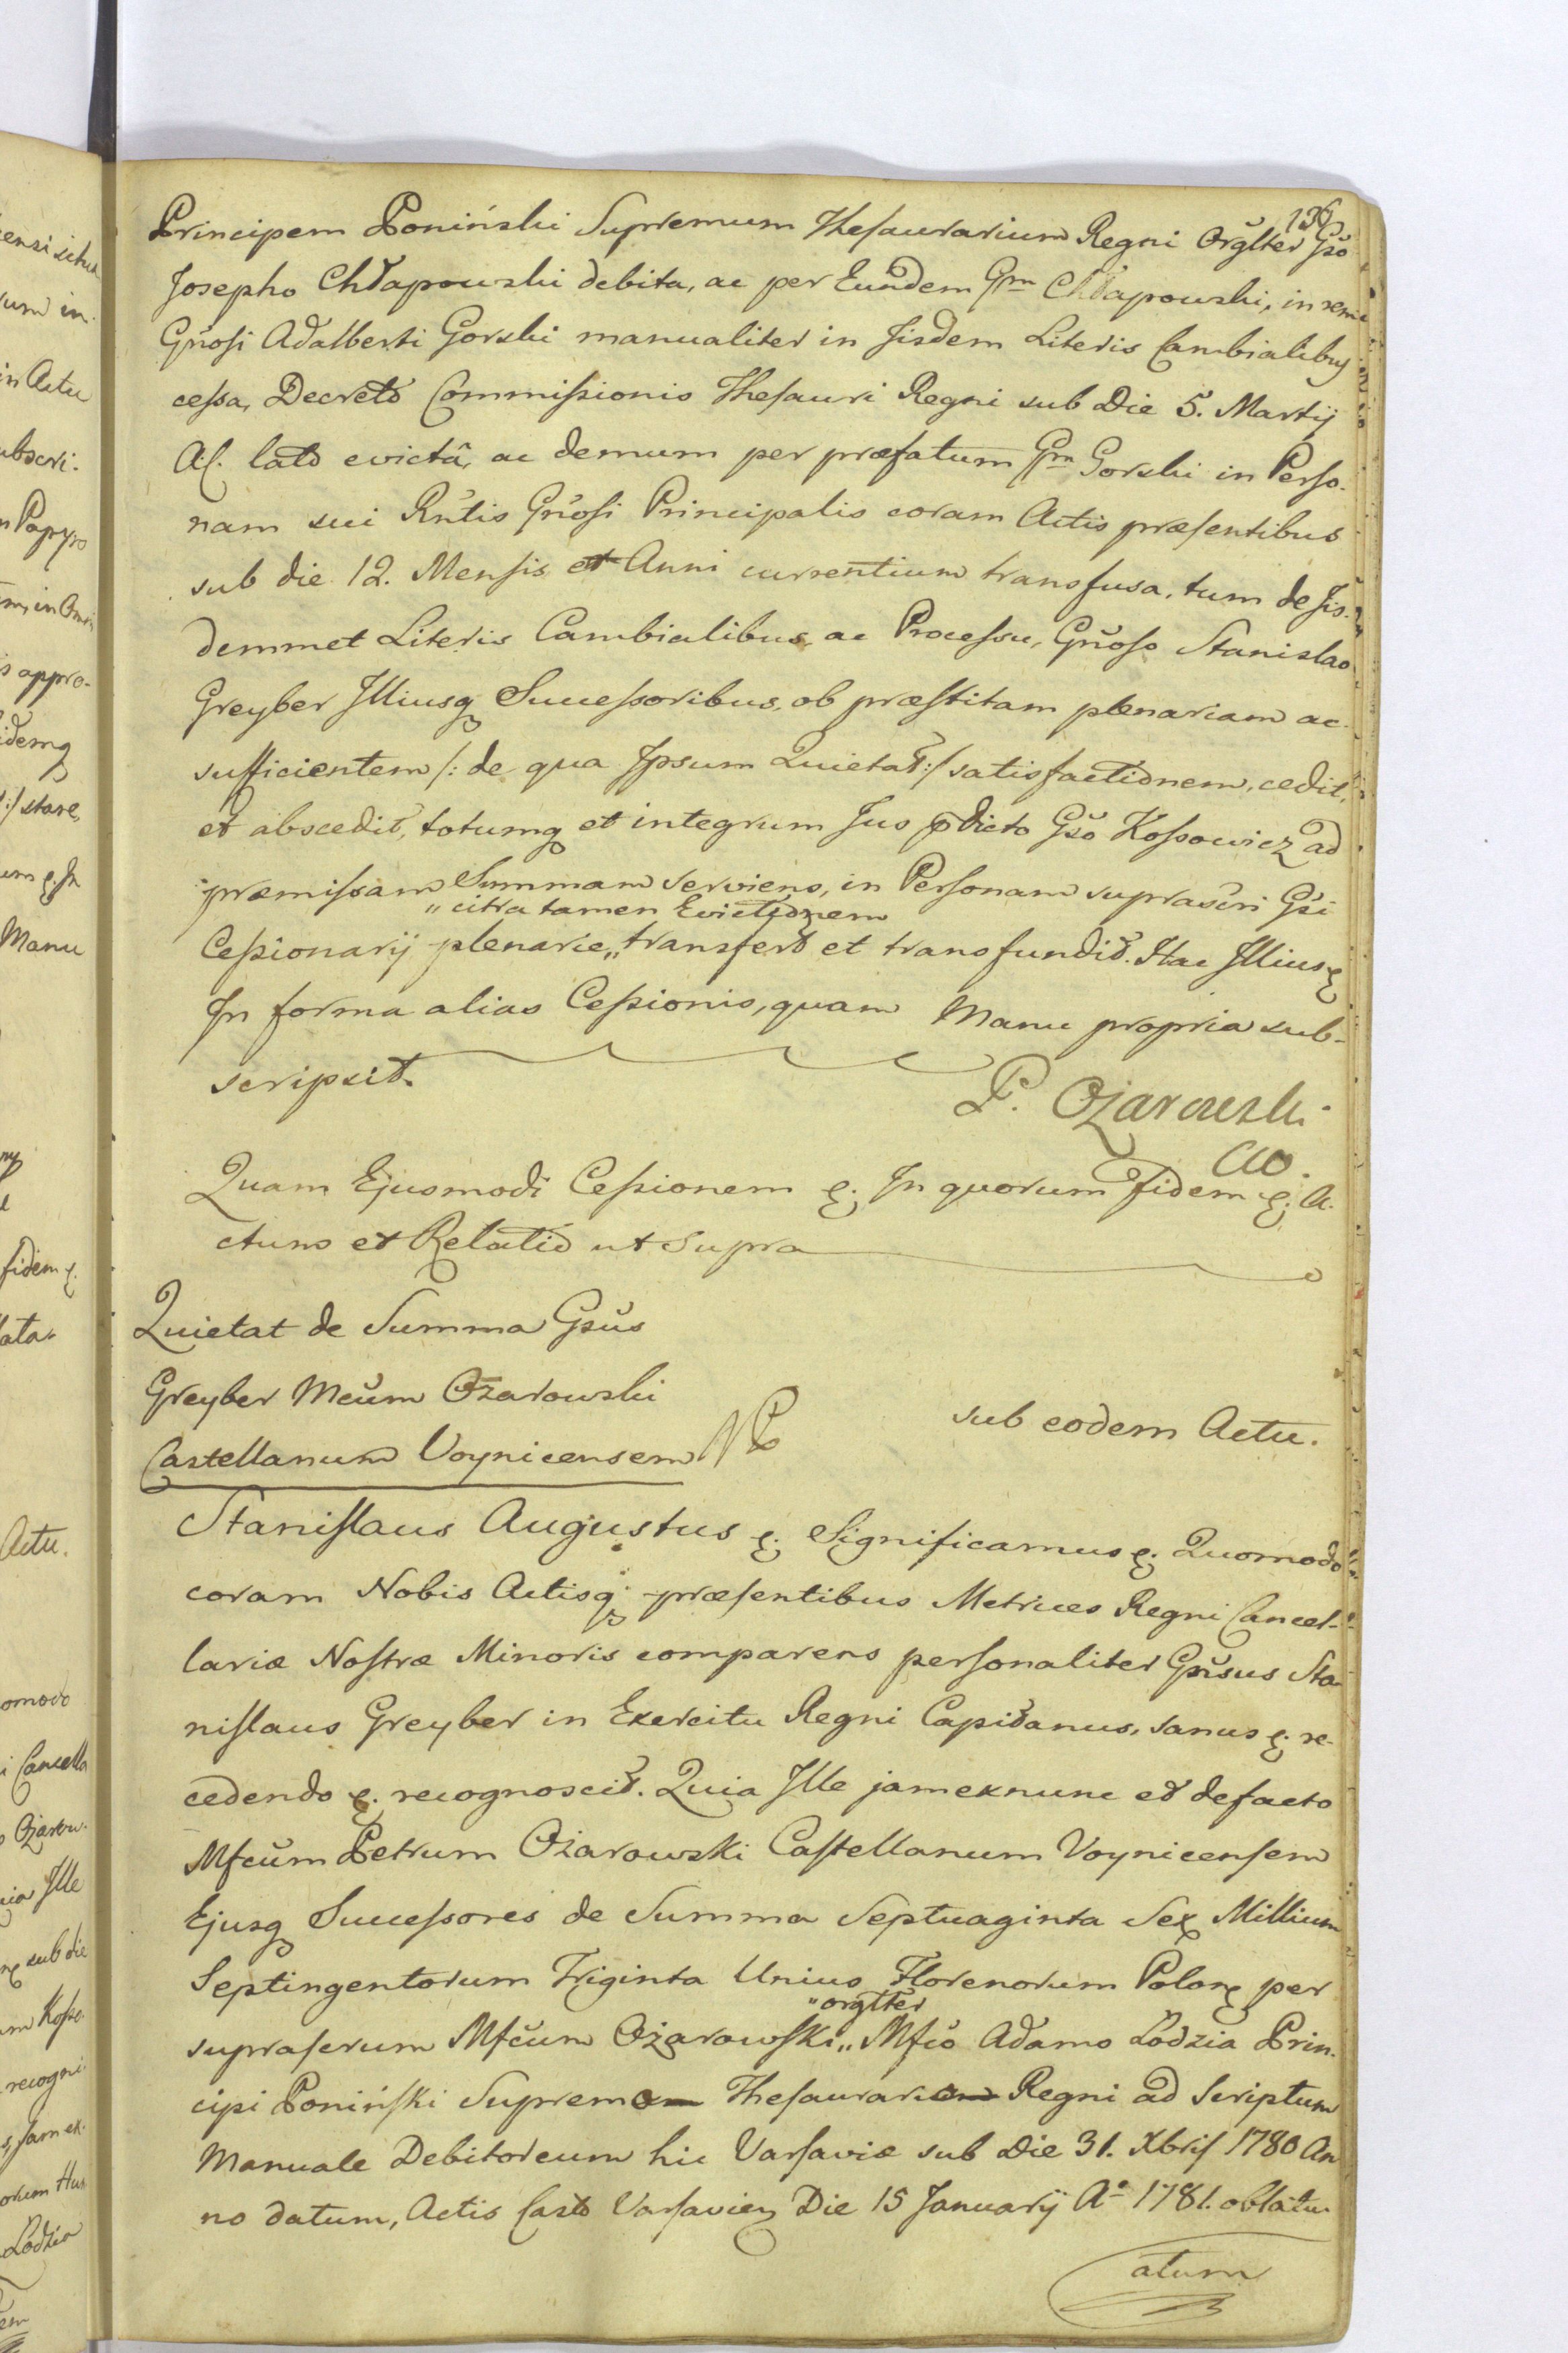 136
Principem Poniński Supremum Thesaurarium Regni Orğlter Gšo
Josepho Chłapowski debita, ac per Eundem Gm Chłapowski, in rem
Gnosi Adalberti Gorski manualiter in Jisdem Literis Cambialibus
cessa, Decreto Commissionis Thesauri Regni sub Die 5. Martij
A.C. lato evictâ, ac demum per præfatum Gm Gorski in Perso-
nam sui Rntis Gnosi Principalis coram Actis præsentibus
sub die 12. Mensis et Anni currentium transfusa, tum de Jis-
demmet Literis Cambialibus ac Processu, Gnoso Stanislao
Greyber Illiusq Successoribus, ob præstitam plenariam ac
sufficientem /: de qua Ipsum Quietat :/ satisfactionem, cedit,
et abscedit, totumq et integrum Jus pdicto Gšo Kossowicz ad
præmissam Summam serviens, in Personam suprascri Gsi
„ citra tamen Evictionem
Cessionarij plenarie „ transfert et transfundit. Itac Illiusq
In forma alias Cessionis, quam Manu propria sub-
scripsit.
P. Ożarowski
CW.
Quam Ejusmodi Cessionem &. In quorum fidem &. A-
ctum et Relatio ut Supra
Quietat de Summa Gsus
Greyber Mcum Ożarowski
Castellanum Voynicensem
sub eodem Actu.
Stanislaus Augustus &. Significamus &. Quomodo
coram Nobis Actisq præsentibus Metrices Regni Cancel-
lariæ Nostræ Minoris comparens personaliter Gnsus Sta-
nislaus Greyber in Exercitu Regni Capitanus, sanus &. re-
cedendo &. recognoscit. Quia Ille jamexnunc et defacto
Mfcum Petrum Ożarowski Castellanum Voynicensem
Ejusq Successores de Summa Septuaginta Sex Millium
Septingentorum Triginta Unius Florenorum Polon per
„ orgtter
suprascrum Mfcum Ożarowski „ Mfco Adamo Lodzia Prin-
cipi Poniński Supremo Thesaurario Regni ad Scriptum
Manuale Debitoreum hic Varsaviæ sub Die 31. Xbris 1780 An
no datum, Actis Casto Varsavien Die 15 Januarij Ao 1781. oblatu
atum